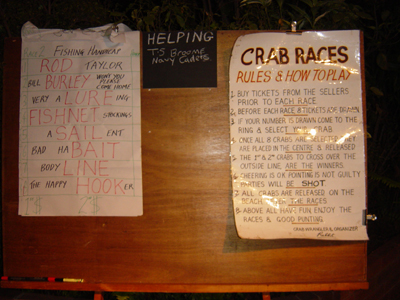 Race 2 FISHING HANDICAP
ROD TAYLOR
BILL BURLEY WON'T YOU PLEASE COME HOME
VERY A LURE ING
FISHNET STOCKINGS
A SAIL ENT
BAD HA BAIT
BODY LINE
THE HAPPY HOOK ER
HELPING
T.S Groome
Navy Cadets
CRAB RACES
RULES & HOW TO PLAY
1. BUY TICKETS FROM THE SELLERS
PRIOR TO EACH RACE
2. BEFORE EACH RACE 8 TICKETS ARE DRAWN
3. IF YOUR NUMBER IS DRAWN COME TO THE
RING & SELECT YOUR CRAB
4. ONCE ALL 8 CRABS ARE SELECTED THEY
ARE PLACED IN THE CENTRE & RELEASED
5. THE 1st & 2nd CRABS TO CROSS OVER THE
OUTSIDE LINE ARE THE WINNERS
6. CHEERING IS OK POINTING IS NOT GUILTY
PARTIES WILL BE SHOT
7. ALL CRABS ARE RELEASED ON THE
BEACH AFTER THE RACES
8. ABOVE ALL HAVE FUN, ENJOY THE
RACES & GOOD PUNTING
CRAB WRANGLER & ORGANIZER